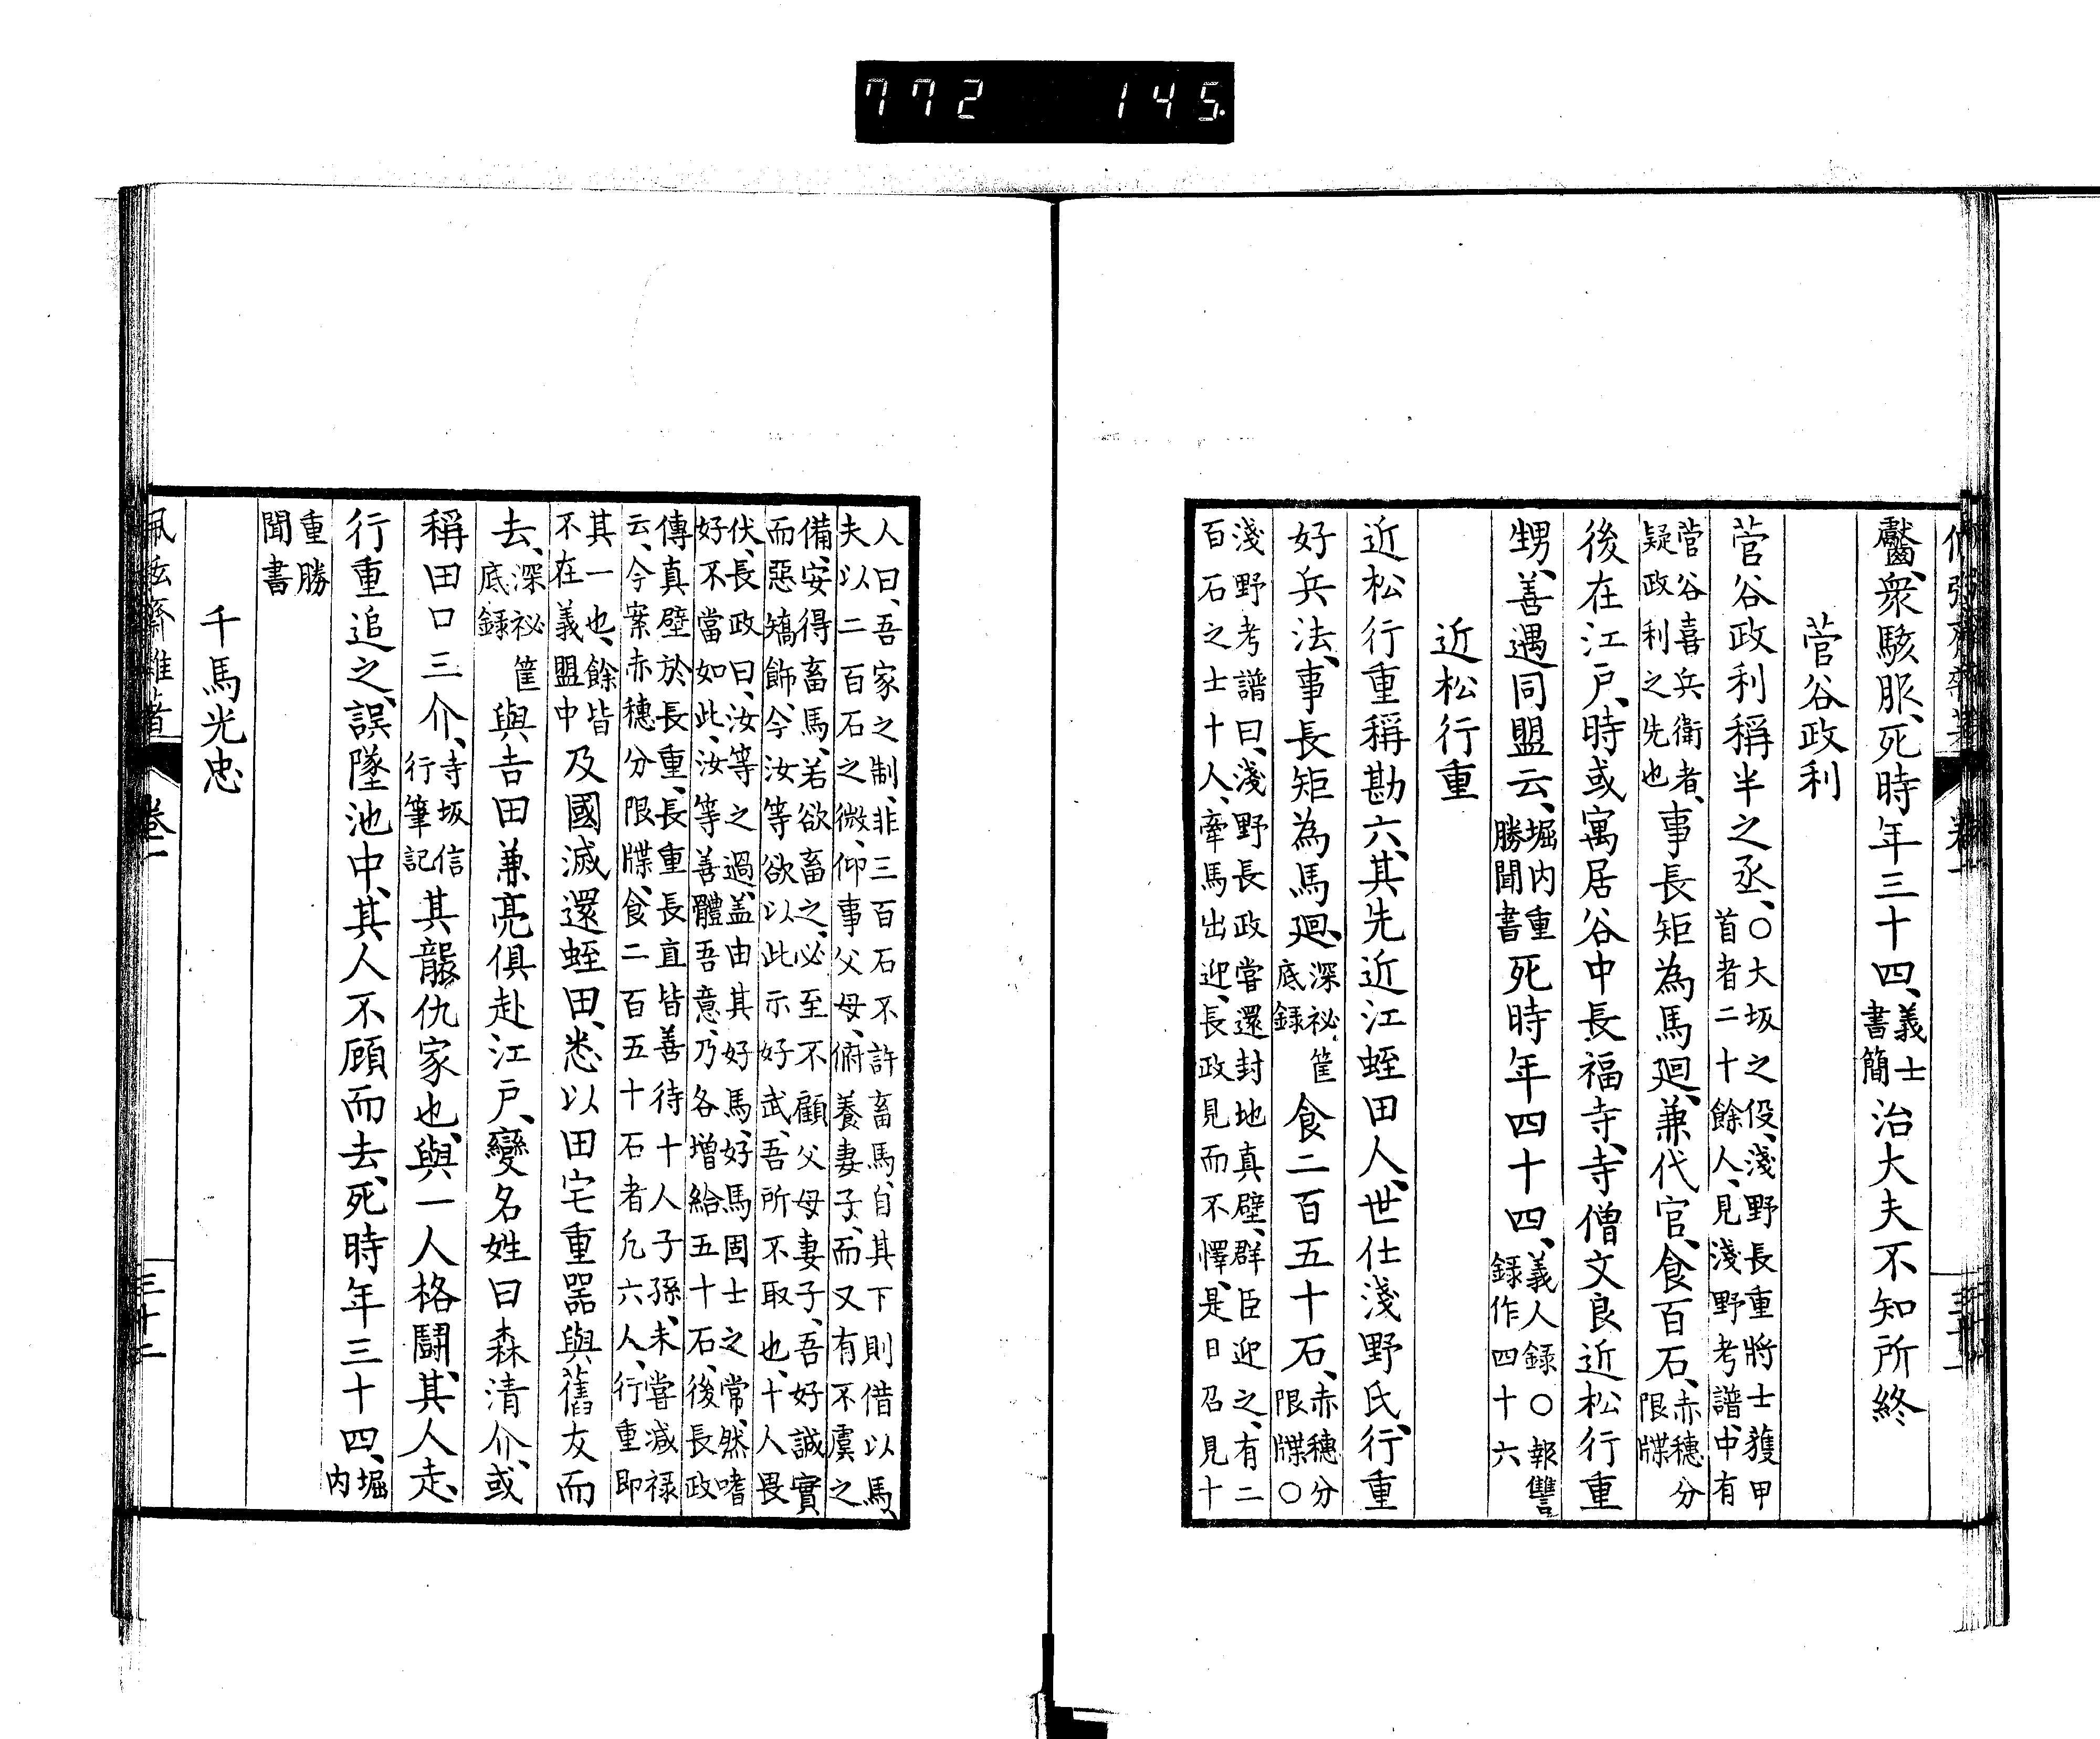 772 145.
齾、衆駭服、死時年三十四、義士書簡治大夫不知所終
菅谷政利
菅谷政利稱半之丞、○大坂之役、淺野長重將士獲甲首者二十餘人、見淺野考譜、中有
菅谷喜兵衛者、疑政利之先也事長矩為馬廻、兼代官、食百石、赤穗分限牒
後在江戸、時或寓居谷中長福寺、寺僧文良近松行重
甥、善遇同盟云、堀内重勝聞書死時年四十四、義人録○報讐録作四十六
近松行重
近松行重稱勘六、其先近江蛭田人、世仕淺野氏、行重
好兵法、事長矩為馬廻、深祕筐底録食二百五十石、赤穗分限牒○
淺野考譜曰、淺野長政嘗還封地真壁、群臣迎之、有二
百石之士十人、牽馬出迎、長政見而不懌、是日召見十
人曰、吾家之制、非三百石不許畜馬、自其下則借以馬、
夫以二百石之微、仰事父母、俯養妻子、而又有不虞之
備、安得畜馬、若欲畜之、必至不顧父母妻子、吾好誠實
而惡矯飾、今汝等欲以此示好武、吾所不取也、十人畏
伏、長政曰、汝等之過、盖由其好馬、好馬固士之常、然嗜
好不當如此、汝等善體吾意、乃各增給五十石、後長政
傳真壁於長重、長重長直皆善待十人子孫、未嘗減禄
云、今案赤穗分限牒、食二百五十石者凡六人、行重即
其一也、餘皆不在義盟中及國滅還蛭田、悉以田宅重器與舊友而
去、深祕筐底録與吉田兼亮俱赴江戸、變名姓曰森清介、或
稱田口三介、寺坂信行筆記其襲仇家也、與一人格鬪、其人走、
行重追之、誤墜池中、其人不顧而去、死時年三十四、堀内
重勝聞書
千馬光忠
佩弦齋雜著 卷一 三十二